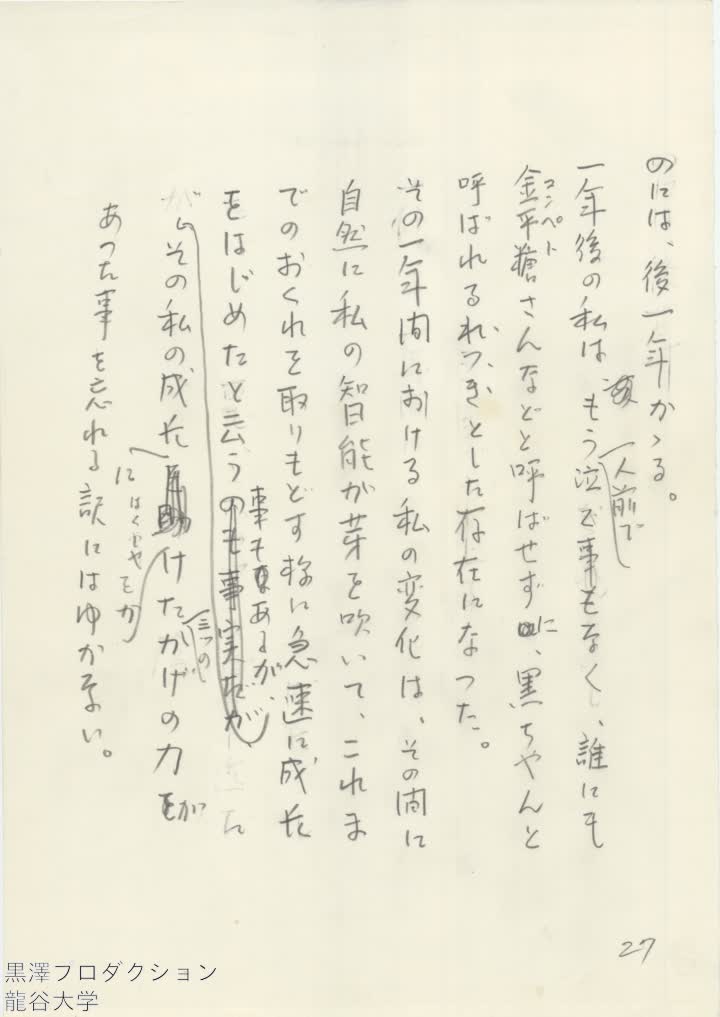 のには、後一年かゝる。
一年後の私は、もう泣く事もなく、誰にも
一人前で
金平糖さんなどと呼ばせずに、黒ちゃんと
コンペト
呼ばれるれつきとした存在になつた。
その一年間における私の変化は、その間に
自然に私の智能が芽を吹いて、これま
でのおくれを取りもどす様に急速に成長
をはじめたと云うのも事実だが、
事もあるが、
その私の成長を助けたかげの力が
にはくしやをか
三つの
あつた事を忘れる訳にはゆかない。
27
黒澤プロダクション
龍谷大学